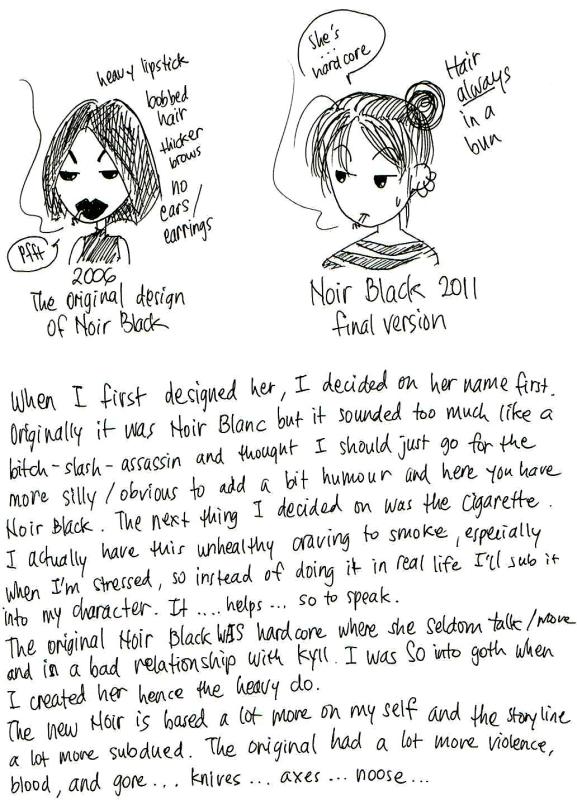 She's
...
hardcore
Hair
always
in a
bun
heavy lipstick
bobbed
hair
thicker
brows
no
ears/
earrings
Pfft
2006
The original design
of Noir Black
Noir Black 2011
final version
When I first designed her, I decided on her name first.
Originally it was Noir Blanc but it sounded too much like a
bitch-slash-assassin and thought I should just go for the
more silly/obvious to add a bit humour and here you have
Noir Black. The next thing I decided on was the cigarette.
I actually have this unhealthy craving to smoke, especially
when I'm stressed, so instead of doing it in real life I'll sub it
into my character. It .... helps ... so to speak.
The original Noir Black WAS hardcore where she seldom talk/move
and is in a bad relationship with Kyll. I was SO into goth when
I created her hence the heavy do.
The new Noir is based a lot more on my self and the storyline
a lot more subdued. The original had a lot more violence,
blood, and gore... knives ... axes ... noose ...